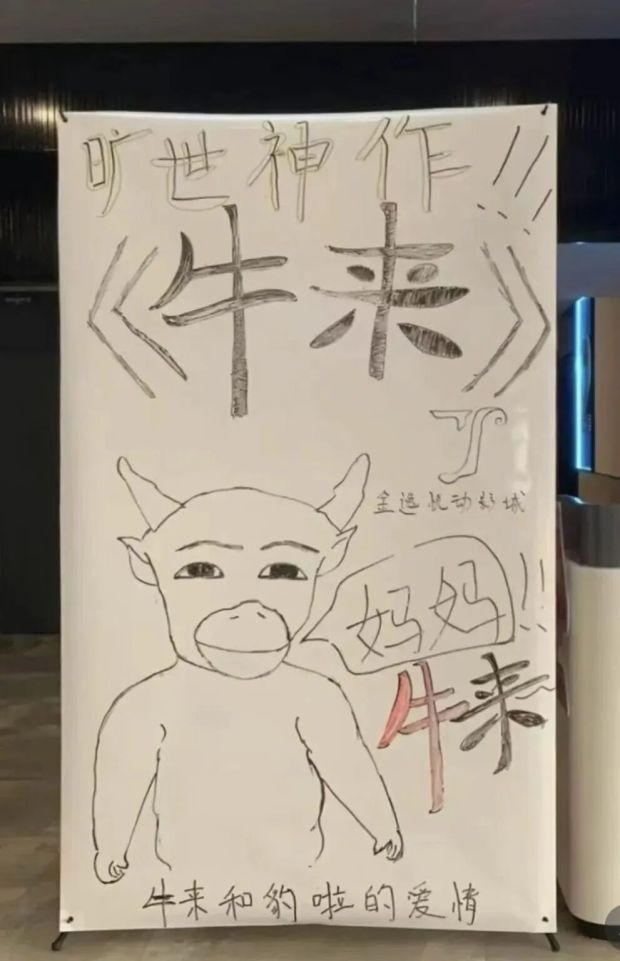 旷世神作!!!
《牛来》
了
金逸悦动影城
妈妈!!
牛来
牛来和豹啦的爱情